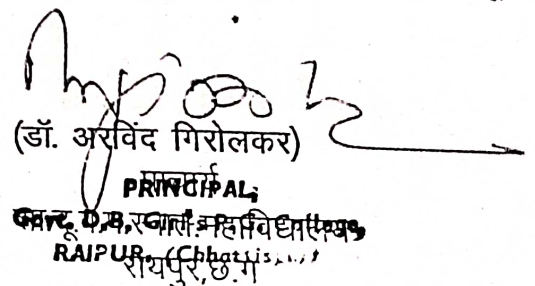 (डॉ. अरविंद गिरोलकर)
प्राचार्य
PRINCIPAL,
Govt. D.B. Girls P.G. College,
RAIPUR, (Chhattis
रायपुर, छ.ग